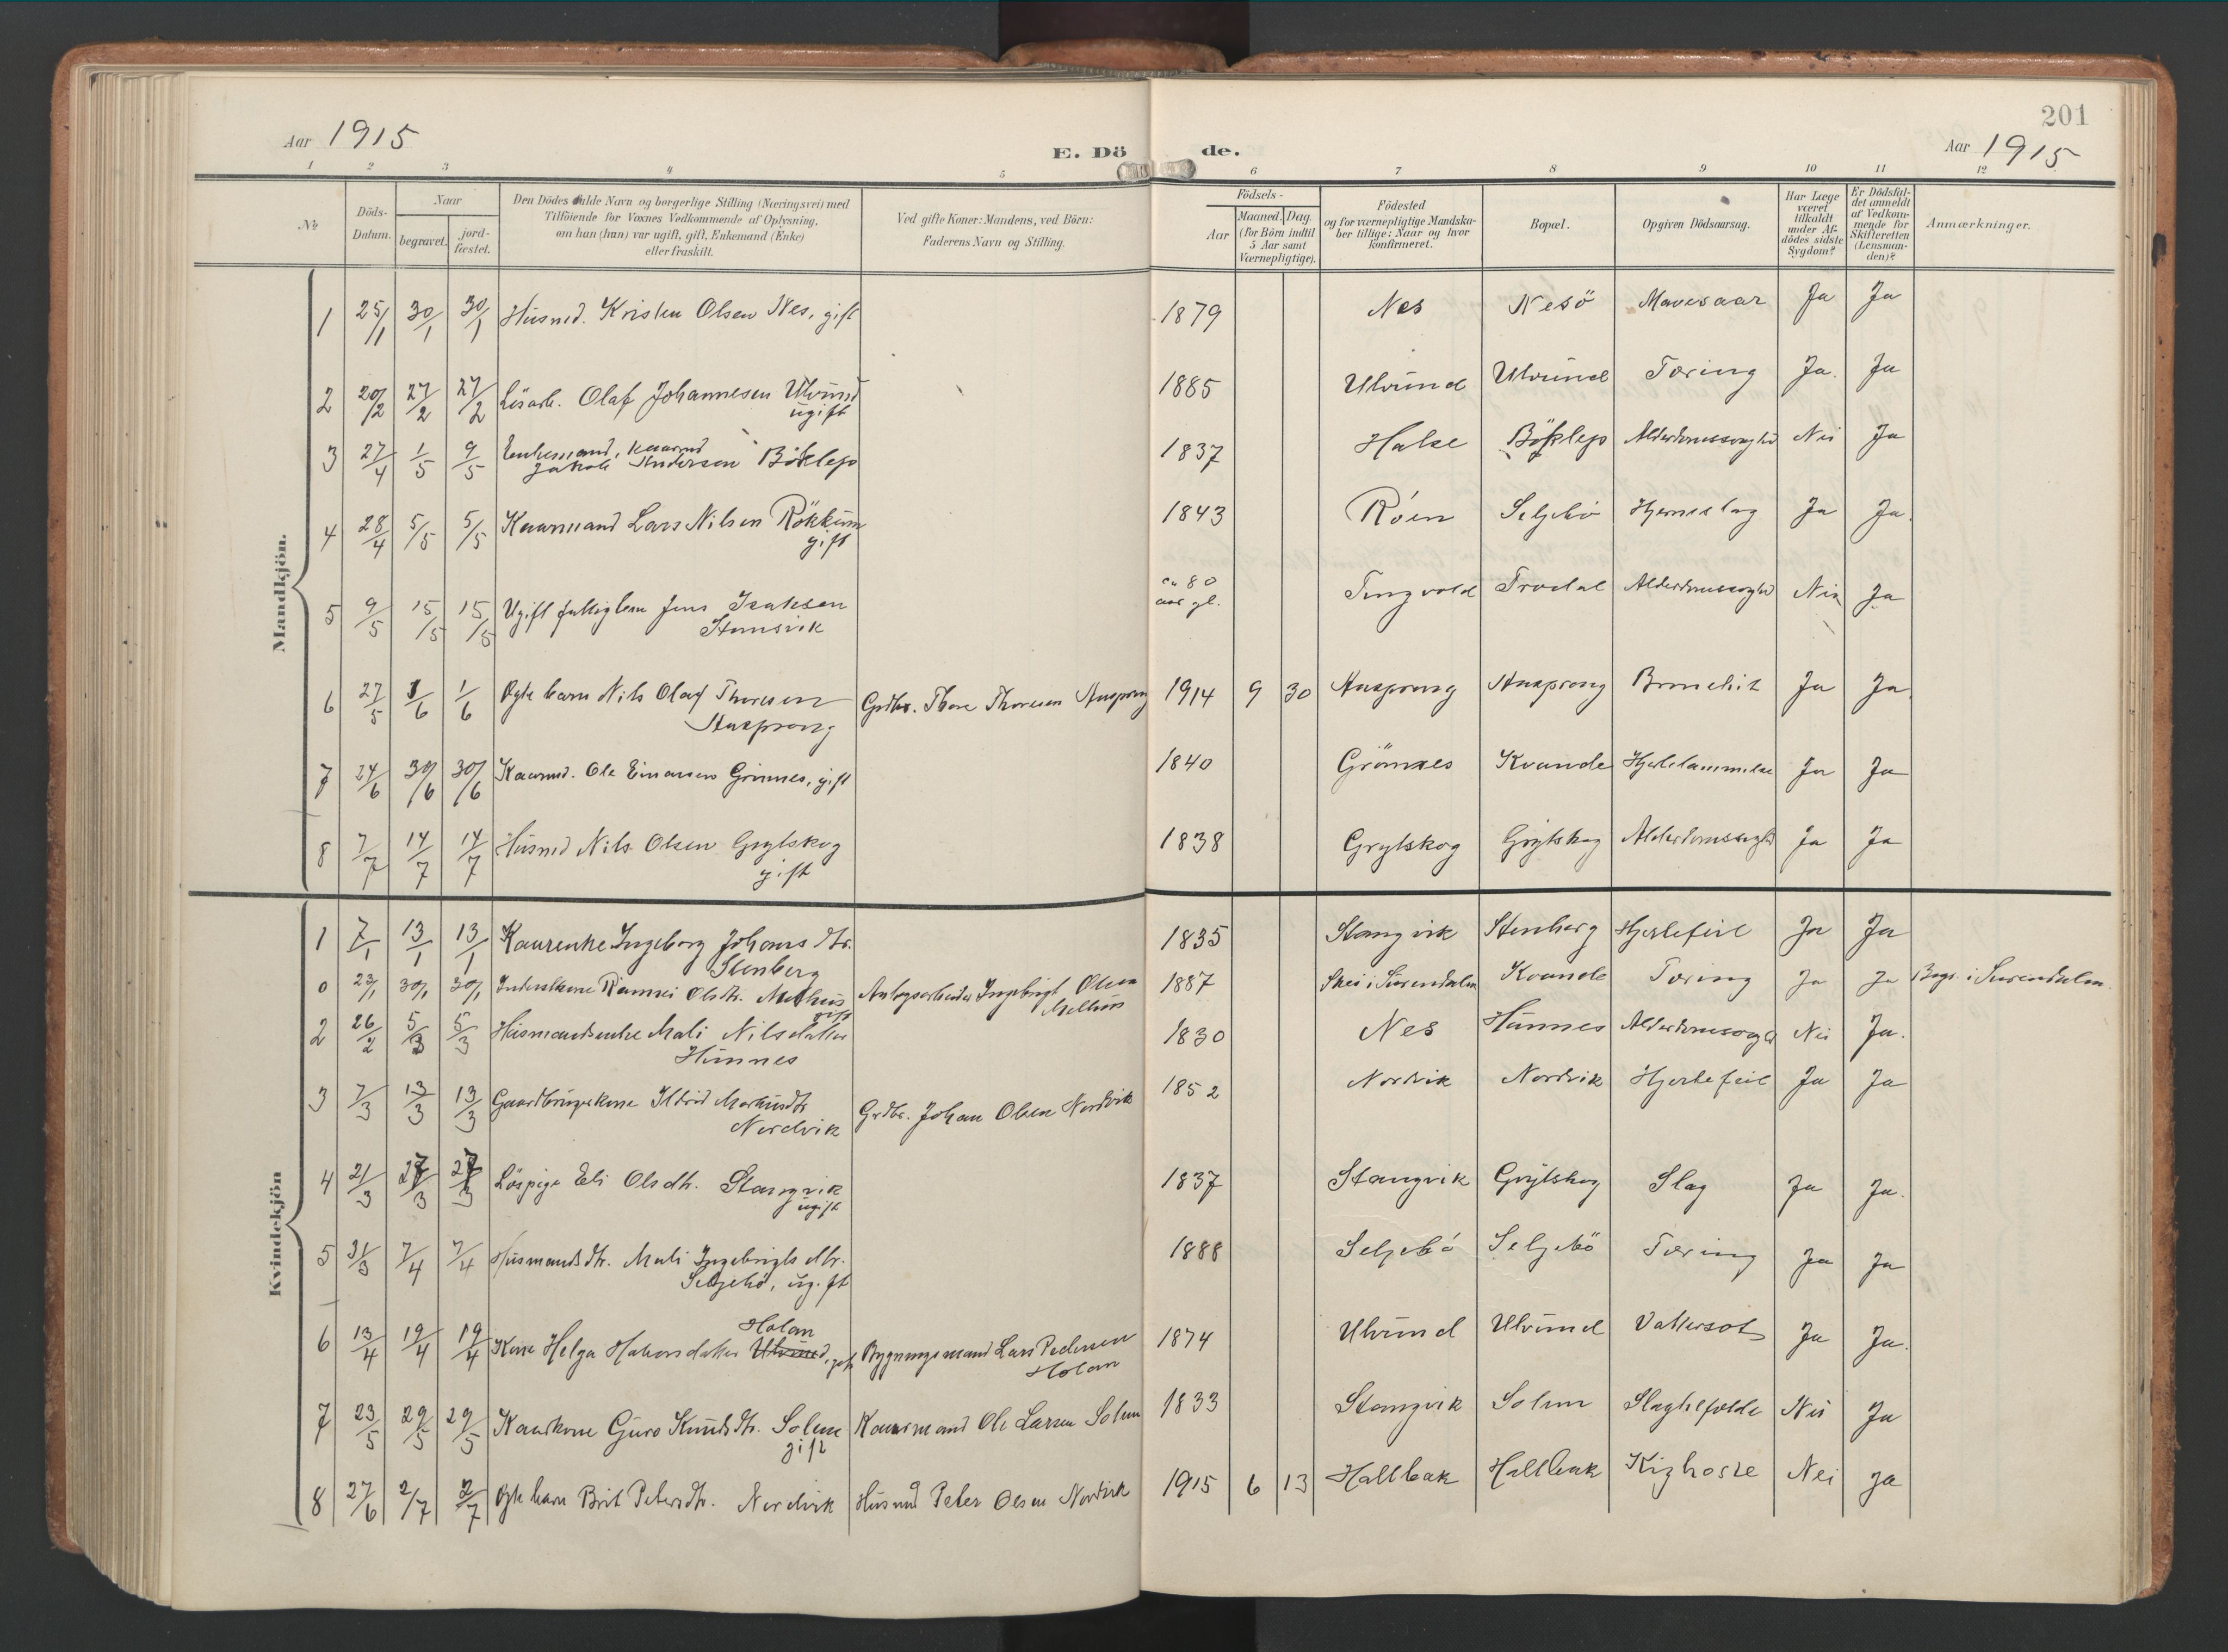 201
Aar 1915
E. Dö de.
Aar 1915
1 2 3 4 5 6 7 8 9 10 11 12
№ Döds-Datum. Naar begravet. jord-fæstet. Den Dödes fulde Navn og borgerlige Stilling (Næringsvei) med Tilföiende for Voxnes Vedkommende af Oplysning, om han (hun) var ugift, gift, Enkemand (Enke) eller fraskilt. Ved gifte Koner: Mandens, ved Börn: Faderens Navn og Stilling. Födsels- Aar Maaned. Dag. (for Börn indtil 5 Aar samt Værnepligtige). Födested og for værnepligtige Mandskaber tillige: Naar og hvor konfirmeret. Bopæl. Opgiven Dödsaarsag. Har Læge været tilkaldt under Afdödes sidste Sygdom? Er Dödsfaldet anmeldt af Vedkommende for Skifteretten (Lensmanden)? Anmærkninger.
Mandkjön.
1 25/1 30/1 30/1 Husmd. Kristen Olsen Nes, gift 1879 Nes Nesö Mavesaar Ja Ja
2 20/2 27/2 27/2 Lösarb. Olaf Johannesen Ulvund ugift 1885 Ulvund Ulvund Tæring Ja. Ja
3 27/4 1/5 9/5 Enkemand, kaarmd Jakob Andersen Böklep 1837 Halse Böklep Alderdomssvaghd Nei Ja
4 28/4 5/5 5/5 Kaarmand Lars Nilsen Rökkum gift 1843 Röen Seljebö Hjerneslag Ja Ja.
5 9/5 15/5 15/5 Ugift fattiglem Jens Isaksen Stensvik ca 80 aar gl. Tingvold Trodal Alderdomssvaghd Nei Ja
6 27/5 1/6 1/6 Ægte barn Nils Olaf Thoresen Aasprong Grdbr. Thore Thoresen Aasprong 1914 9 30 Aasprong Aasprong Bronchit Ja Ja.
7 24/6 30/6 30/6 Kaarmd. Ole Einarsen Grimnes, gift 1840 Grönnes Kvande Hjertelammelse Ja Ja
8 7/7 14/7 14/7 Husmd Nils Olsen Grytskog gift 1838 Grytskog Grytskog Alderdomssvaghd Ja Ja
Kvindekjön
1 7/1 13/1 13/1 Kaarenke Ingeborg Johans dtr. Stenberg 1835 Stangvik Stenberg Hjertefeil Ja Ja
0 23/1 30/1 30/1 Inderstkone Ramnei Olsdtr. Melhus gift Anlægsarbeider Ingebrigt Olsen Melhus 1887 Skei i Surendalen Kvande Tæring Ja Ja Begr. i Surendalen.
2 26/2 5/3 5/3 Husmandsenke Mali Nilsdatter Hunnes 1830 Nes Hunnes Alderdomssvaghd Nei Ja.
3 7/3 13/3 13/3 Gaardbrugerkone Ildrid Markusdtr Nordvik Grdbr. Johan Olsen Nordvik 1852 Nordvik Nordvik Hjertefeil Ja Ja
4 21/3 27/3 27/3 Löspige Eli Olsdtr. Stangvik ugift 1837 Stangvik Grytskog Slag Ja Ja.
5 31/3 7/4 7/4 Husmandsdtr. Mali Ingebrigts dtr. Seljebö, ugift 1888 Seljebö Seljebö Tæring Ja Ja
6 13/4 19/4 19/4 Kone Helga Hakonsdatter Ulvund Holan, gift Bygningsmand Lars Pedersen Holan 1874 Ulvund Ulvund Vattersot Ja Ja.
7 23/5 29/5 29/5 Kaarkone Guro Knudsdtr. Solem gift Kaarmand Ole Larsen Solem 1833 Stangvik Solem Slagtilfælde Nei Ja
8 27/6 2/7 2/7 Ægte barn Brit Petersdtr. Nordvik Husmd Peter Olsen Nordvik 1915 6 13 Hallbak Hallbak Kighoste Nei Ja